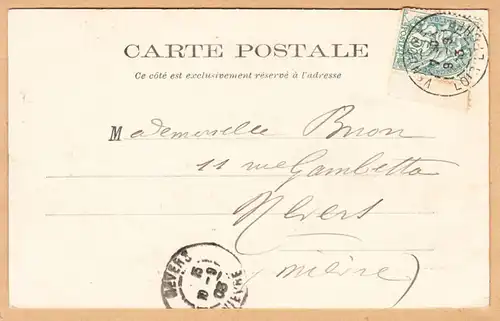 CARTE POSTALE
Ce côté est exclusivement réservé à l'adresse
Mademoiselle Buon
11 rue Gambetta
Nevers
(Nièvre)
NEVERS
NIEVRE